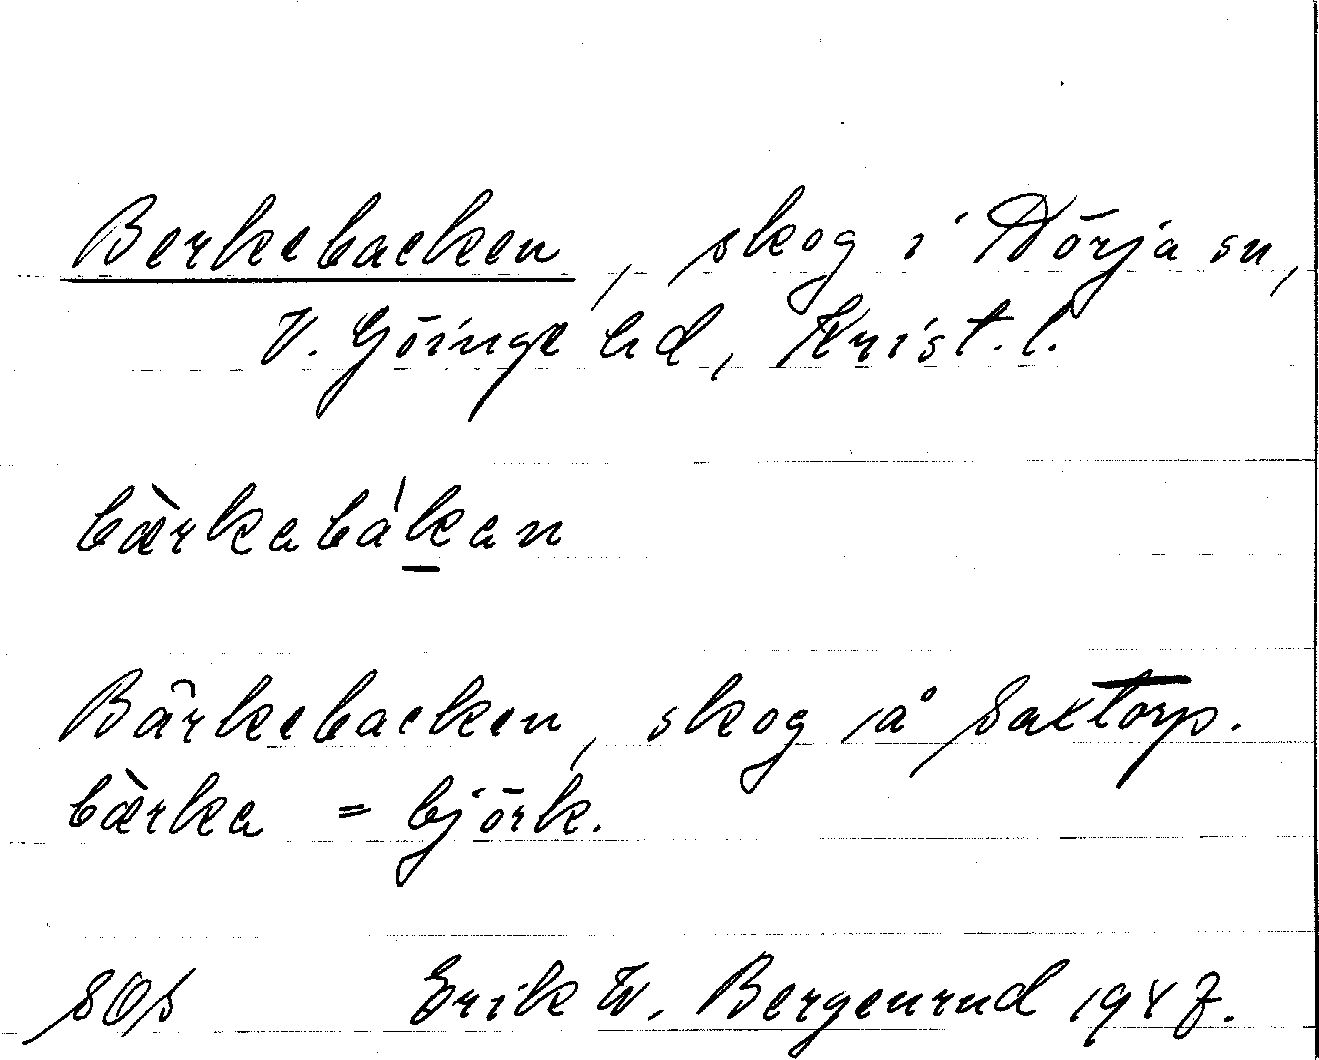 Berkebacken, skog i Nörja sn,
V. Göinge hd, Krist. l.
bær̀kabákan
Bärkebacken, skog å Saxtorp.
bær̀ka = björk.
SOS Erik W. Bergenrud 1947.